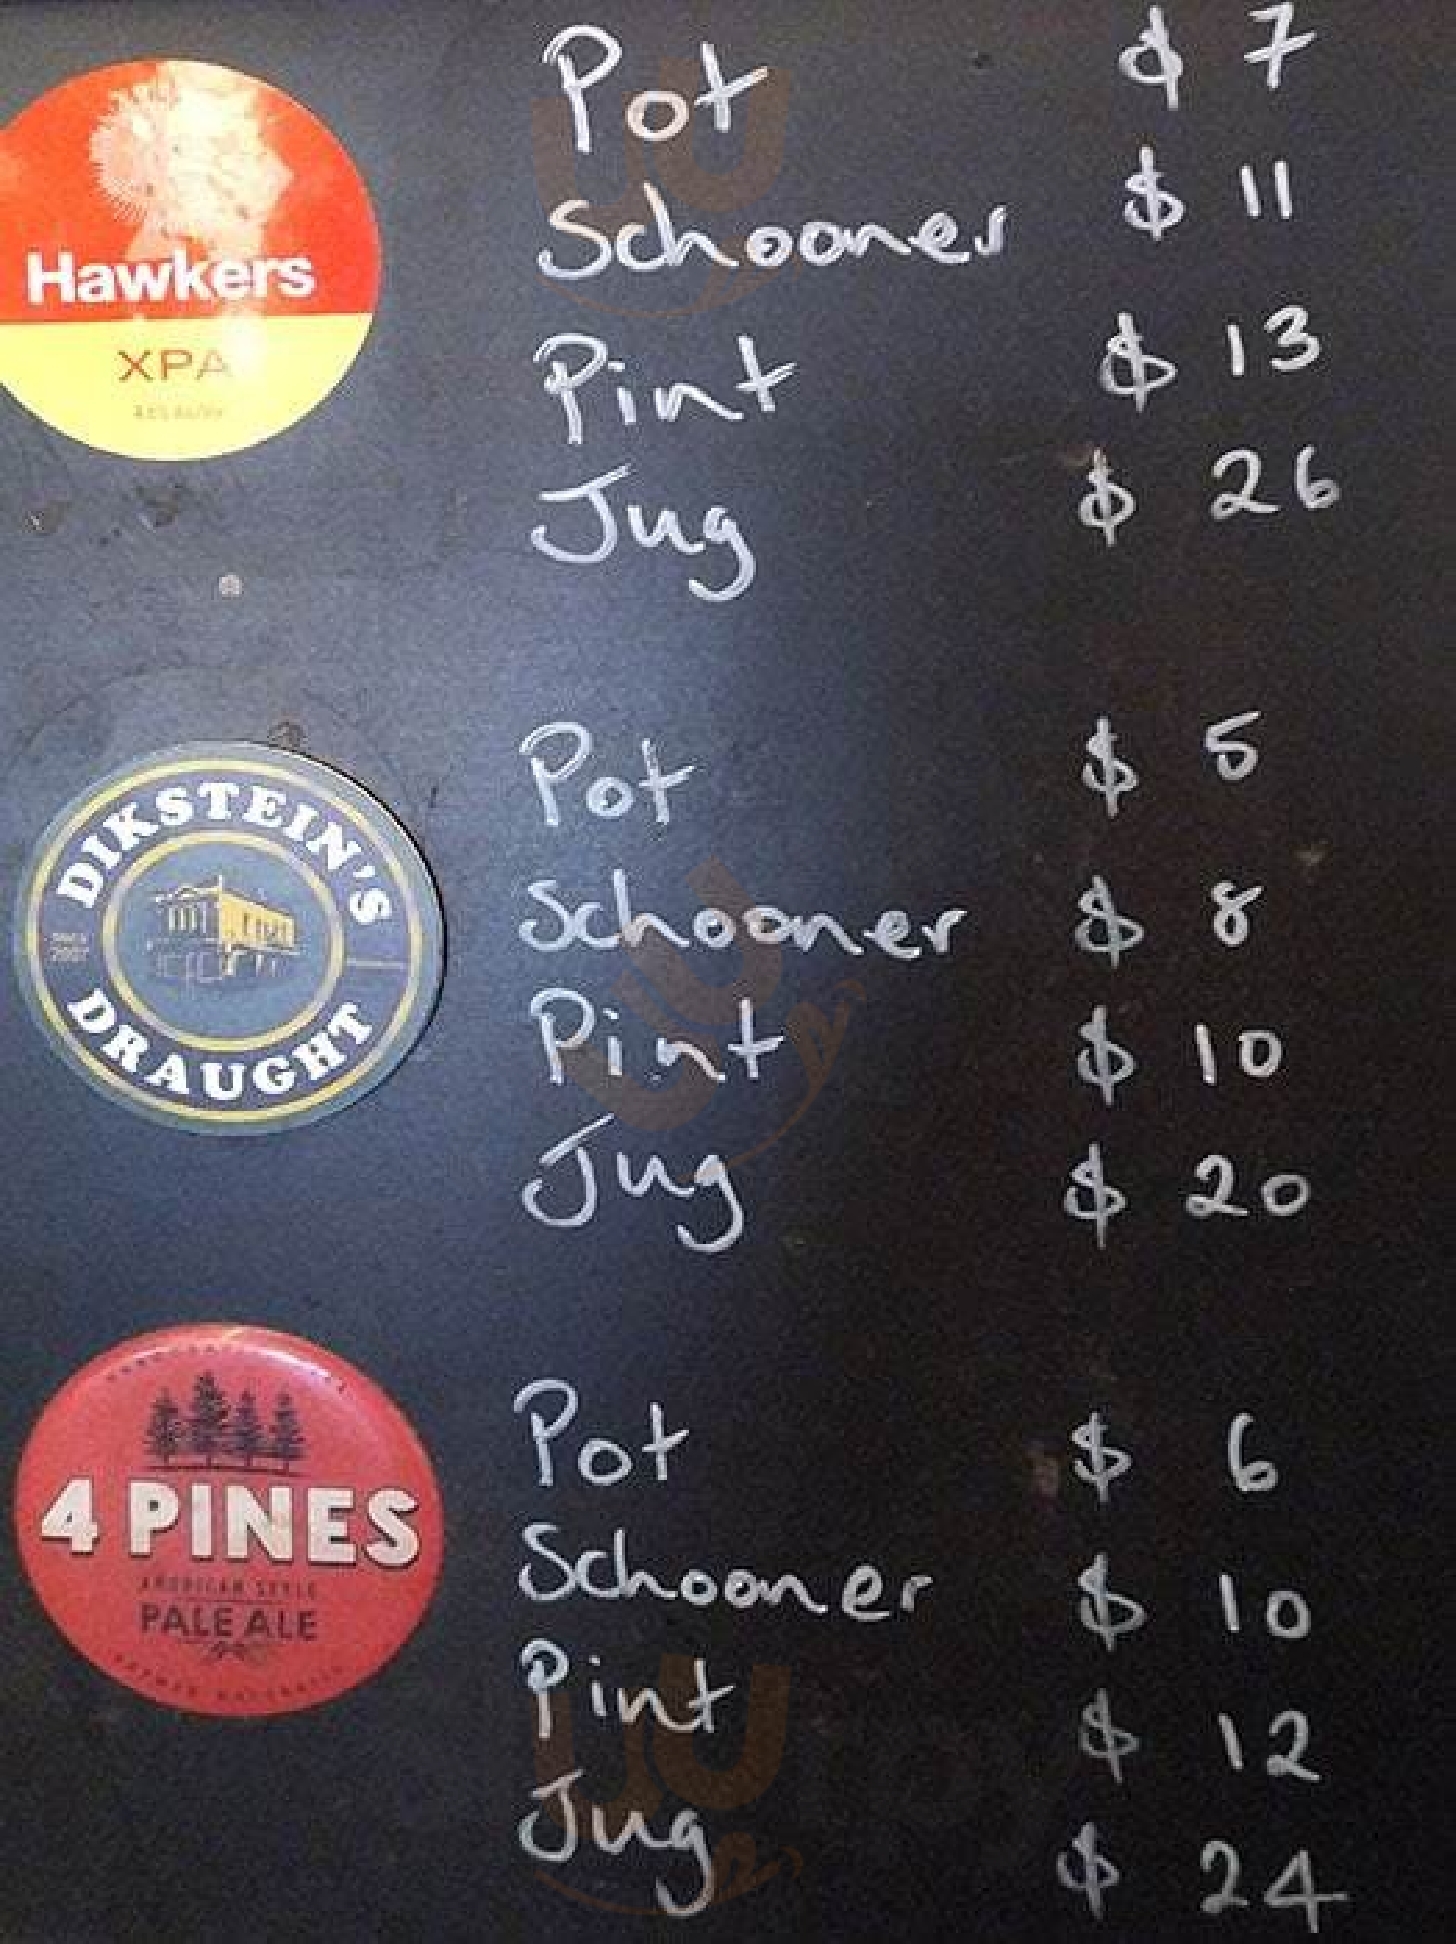 Hawkers
XPA
Pot $ 7
Schooner $ 11
Pint $ 13
Jug $ 26
DIKSTEIN'S
DRAUGHT
SINCE
2007
Pot $ 5
Schooner $ 8
Pint $ 10
Jug $ 20
4 PINES
AMERICAN STYLE
PALE ALE
Pot $ 6
Schooner $ 10
Pint $ 12
Jug $ 24